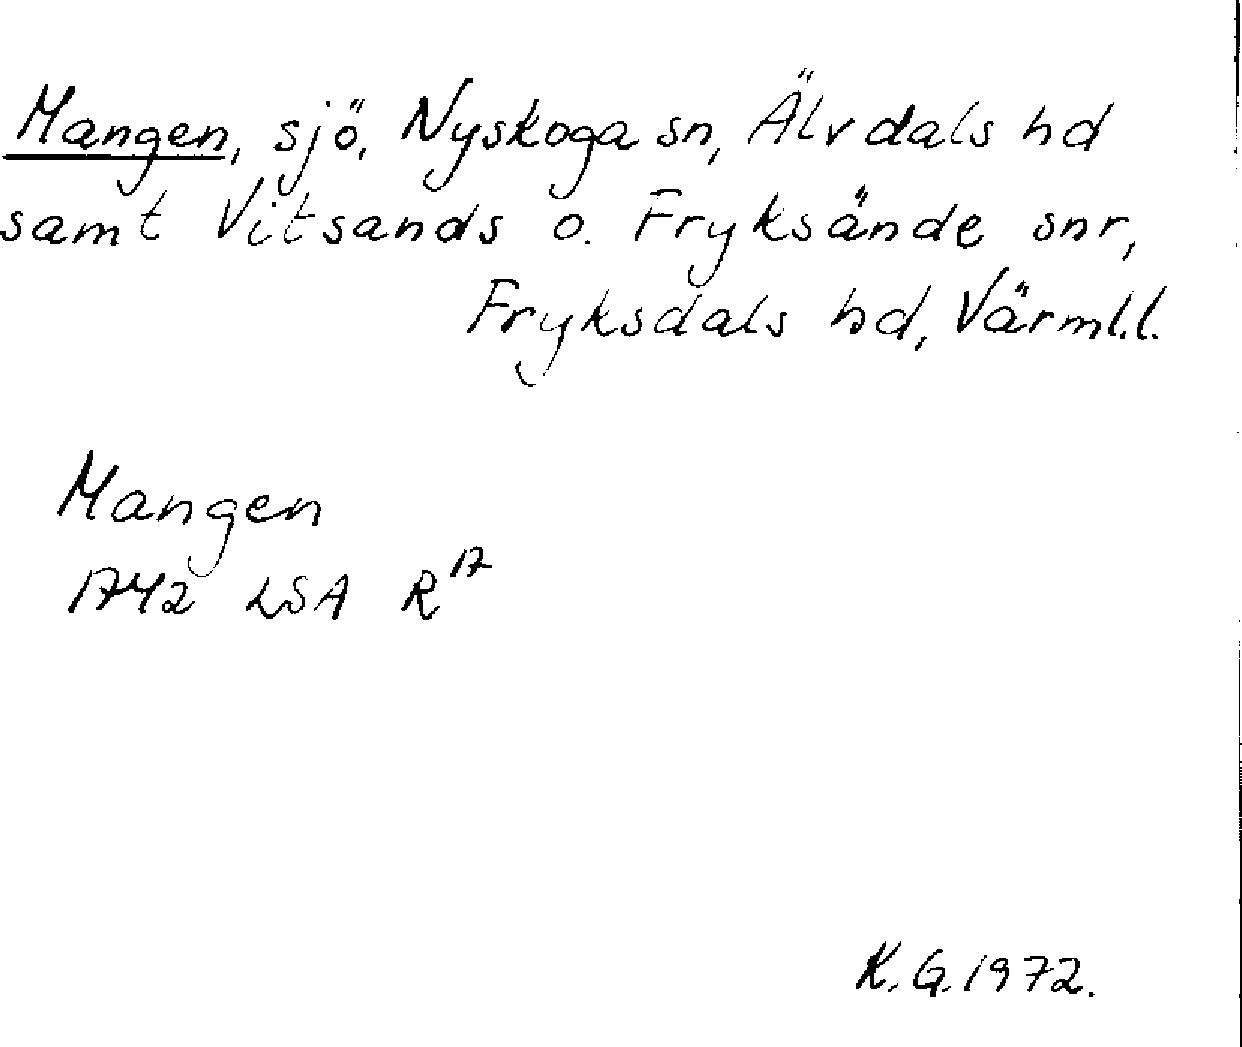 Mangen, sjö, Nyskoga sn, Älvdals hd
samt Vitsands o. Fryksände snr,
Fryksdals hd, Värml.l.
Mangen
1742 LSA R17
K.G.1972.